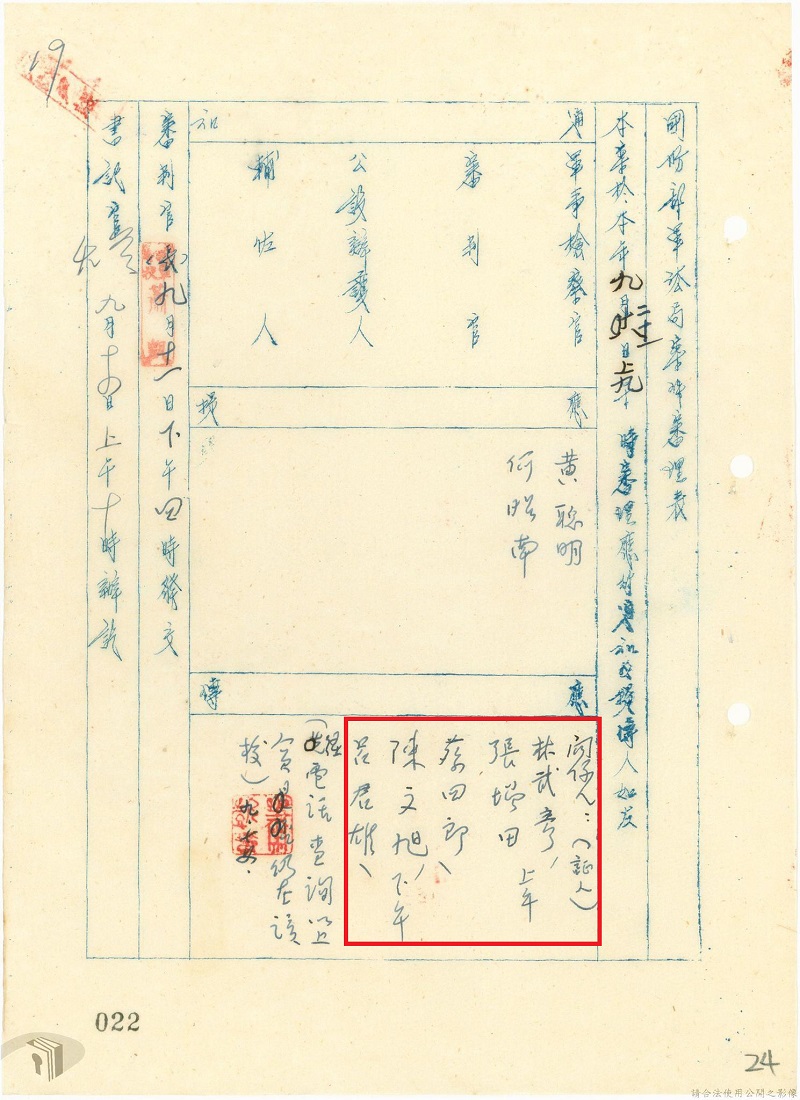 19
國防部軍法局案件審理表
本案於本年九月二十三日上九時審理應付通知及提傳人如左
通知
軍事檢察官
審判官
公設辯護人
輔佐人
應提
黃聰明
何昭南
應傳
關係人：（証人）
林武彥、
張瑞田 上午
蔡四郎、
陳文旭、下午
呂君雄、
（經電話查詢以上
仍在該
校）
審判官 九月十一日下午四時發文
書記官 九月十四日上午十時辦訖
022
24
請合法使用公開之影像